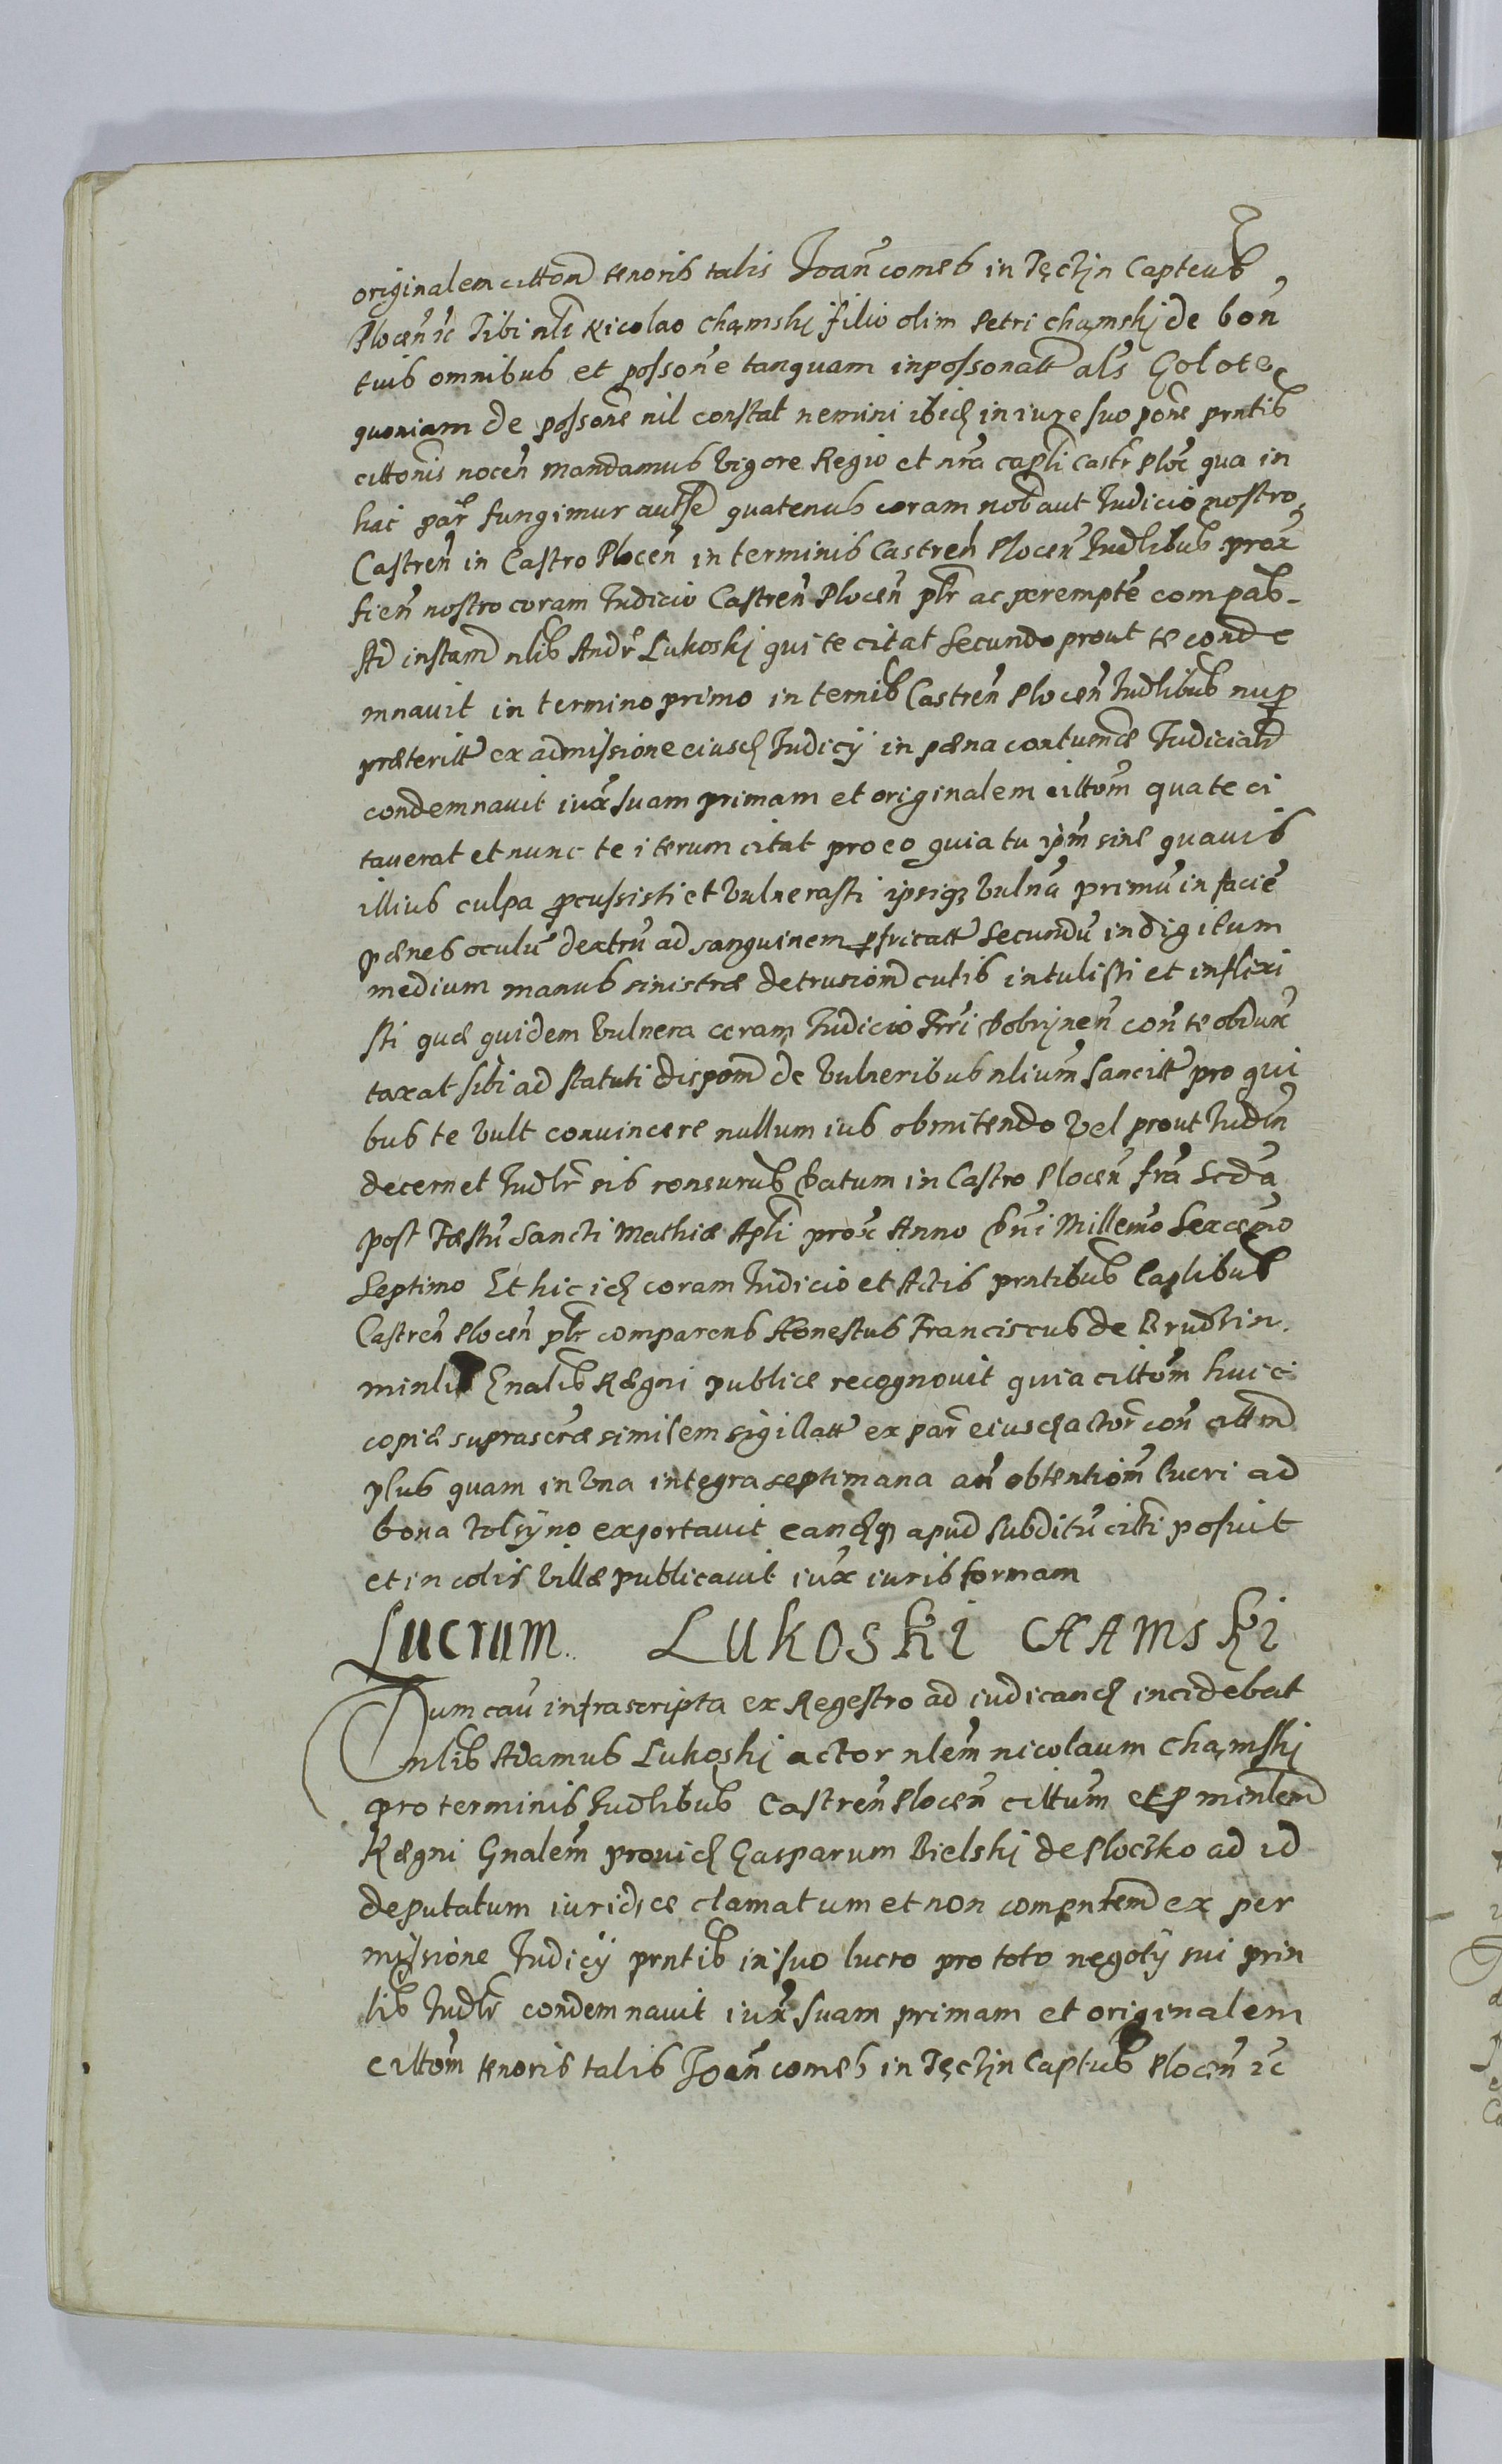 originalem cittom̃ tenoris talis Joañ comes in Tęcżjn Capteus
Plocen̄ ꝛc Tibi nli Nicolao Chąmskj filio olim Petri Chąmskj de bon̄
tuis omnibus et possone tanquam inpossonatt als Gołote
quoniam de possone nil constat nemini ibid in iure suo pone pntib
cittonis nocen̄ mandamus vigore Regio et nr̄a capli Castr Ploc̄ qua in
hac par̄ fungimur autte quatenus coram nob aut Judicio nostro
Castren̄ in Castro Plocen̄ in terminis Castren̄ Plocen̄ Judlibus prox̄
fien̄ nostro coram Judicio Castren̄ Plocen̄ plr ac perempte compas.
Ad instam̄ nlis Andr̄ Lukoskj qui te citat Secundo prout te conde
mnavit in termino primo in ternis Castren̄ Plocen̄ Judlibus nup
præteritt ex admissione eiusd Judicij in pæna contuendæ Judiciali
condemnavit iux̄ suam primam et originalem cittom̄ qua te ci
taverat et nunc te iterum citat pro eo quia tu ipm̄ sine quavis
illius culpa pcussisti et vulnerasti ipsiq vulnū primū in facie
pænes oculū dextrū ad sanguinem pfricatt Secundū in digitum
medium manus sinistræ detrusiom̄ cutis intulisti et inflixi
sti quæ quidem vulnera coram Judicio Trri Dobrijnen̄ con̄ te obdux̄
taxat sibi ad statuti dispom̄ de vulneribus nlium̄ Sancitt pro qui
bus te vult convincere nullum ius obmitendo vel prout Judm̄
decernet Judlr sis ronsurus Datum in Castro Plocen̄ fr̄a Scda
post Fæstū Sancti Mathiæ Apli prox̄ Anno Dni Millem̄o Sexcemo
Septimo Et hic id coram Judicio et Actis pntibus Caplibus
Castren̄ Plocen̄ plr comparens Honestus Franciscus de Brudżin
minlis Gnalis Rægni publice recognovit quia cittom̄ huic
copiæ suprascræ similem sigillatt ex par̄ eiusd actor con̄ cittm̄
plus quam in vna integra septimana an̄ obtentiom̄ lucri ad
bona Tolsyno exportavit eandq apud Subditū citti posuit
et incolis villæ publicavit iux̄ iuris formam
Lucrum. LUKOSKI CHAMSKI
Dum cau infrascripta ex Regestro ad iudicand incidebat
nlis Adamus Lukoskj actor nlem̄ nicolaum Chąmskj
pro terminis Judlibus Castren̄ Plocen̄ cittum et p minlem̄
Rægni Gnalem̄ provid Gasparum Bielskj de Plocsko ad id
deputatum iuridice clamatum et non compntem̄ ex per
missione Judicij pntis in suo lucro pro toto negotij sui prin
lis Judlr condemnavit iux̄ Suam primam et originalem
cittom̄ tenoris talis Joan̄ comes in Tęcżjn Captus Plocen̄ ꝛc